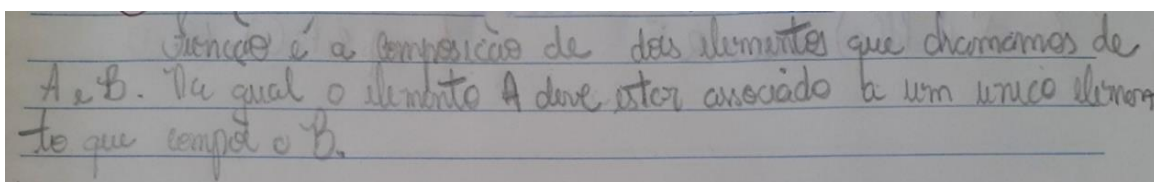 Função é a composição de dois elementos que chamamos de
A e B. Na qual o elemento A deve estar associado a um unico elemen
to que compõe o B.